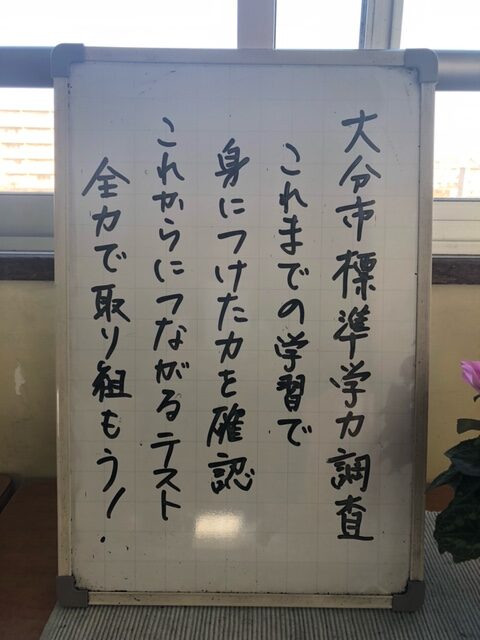 大分市標準学力調査
これまでの学習で
身につけた力を確認
これからにつながるテスト
全力で取り組もう!